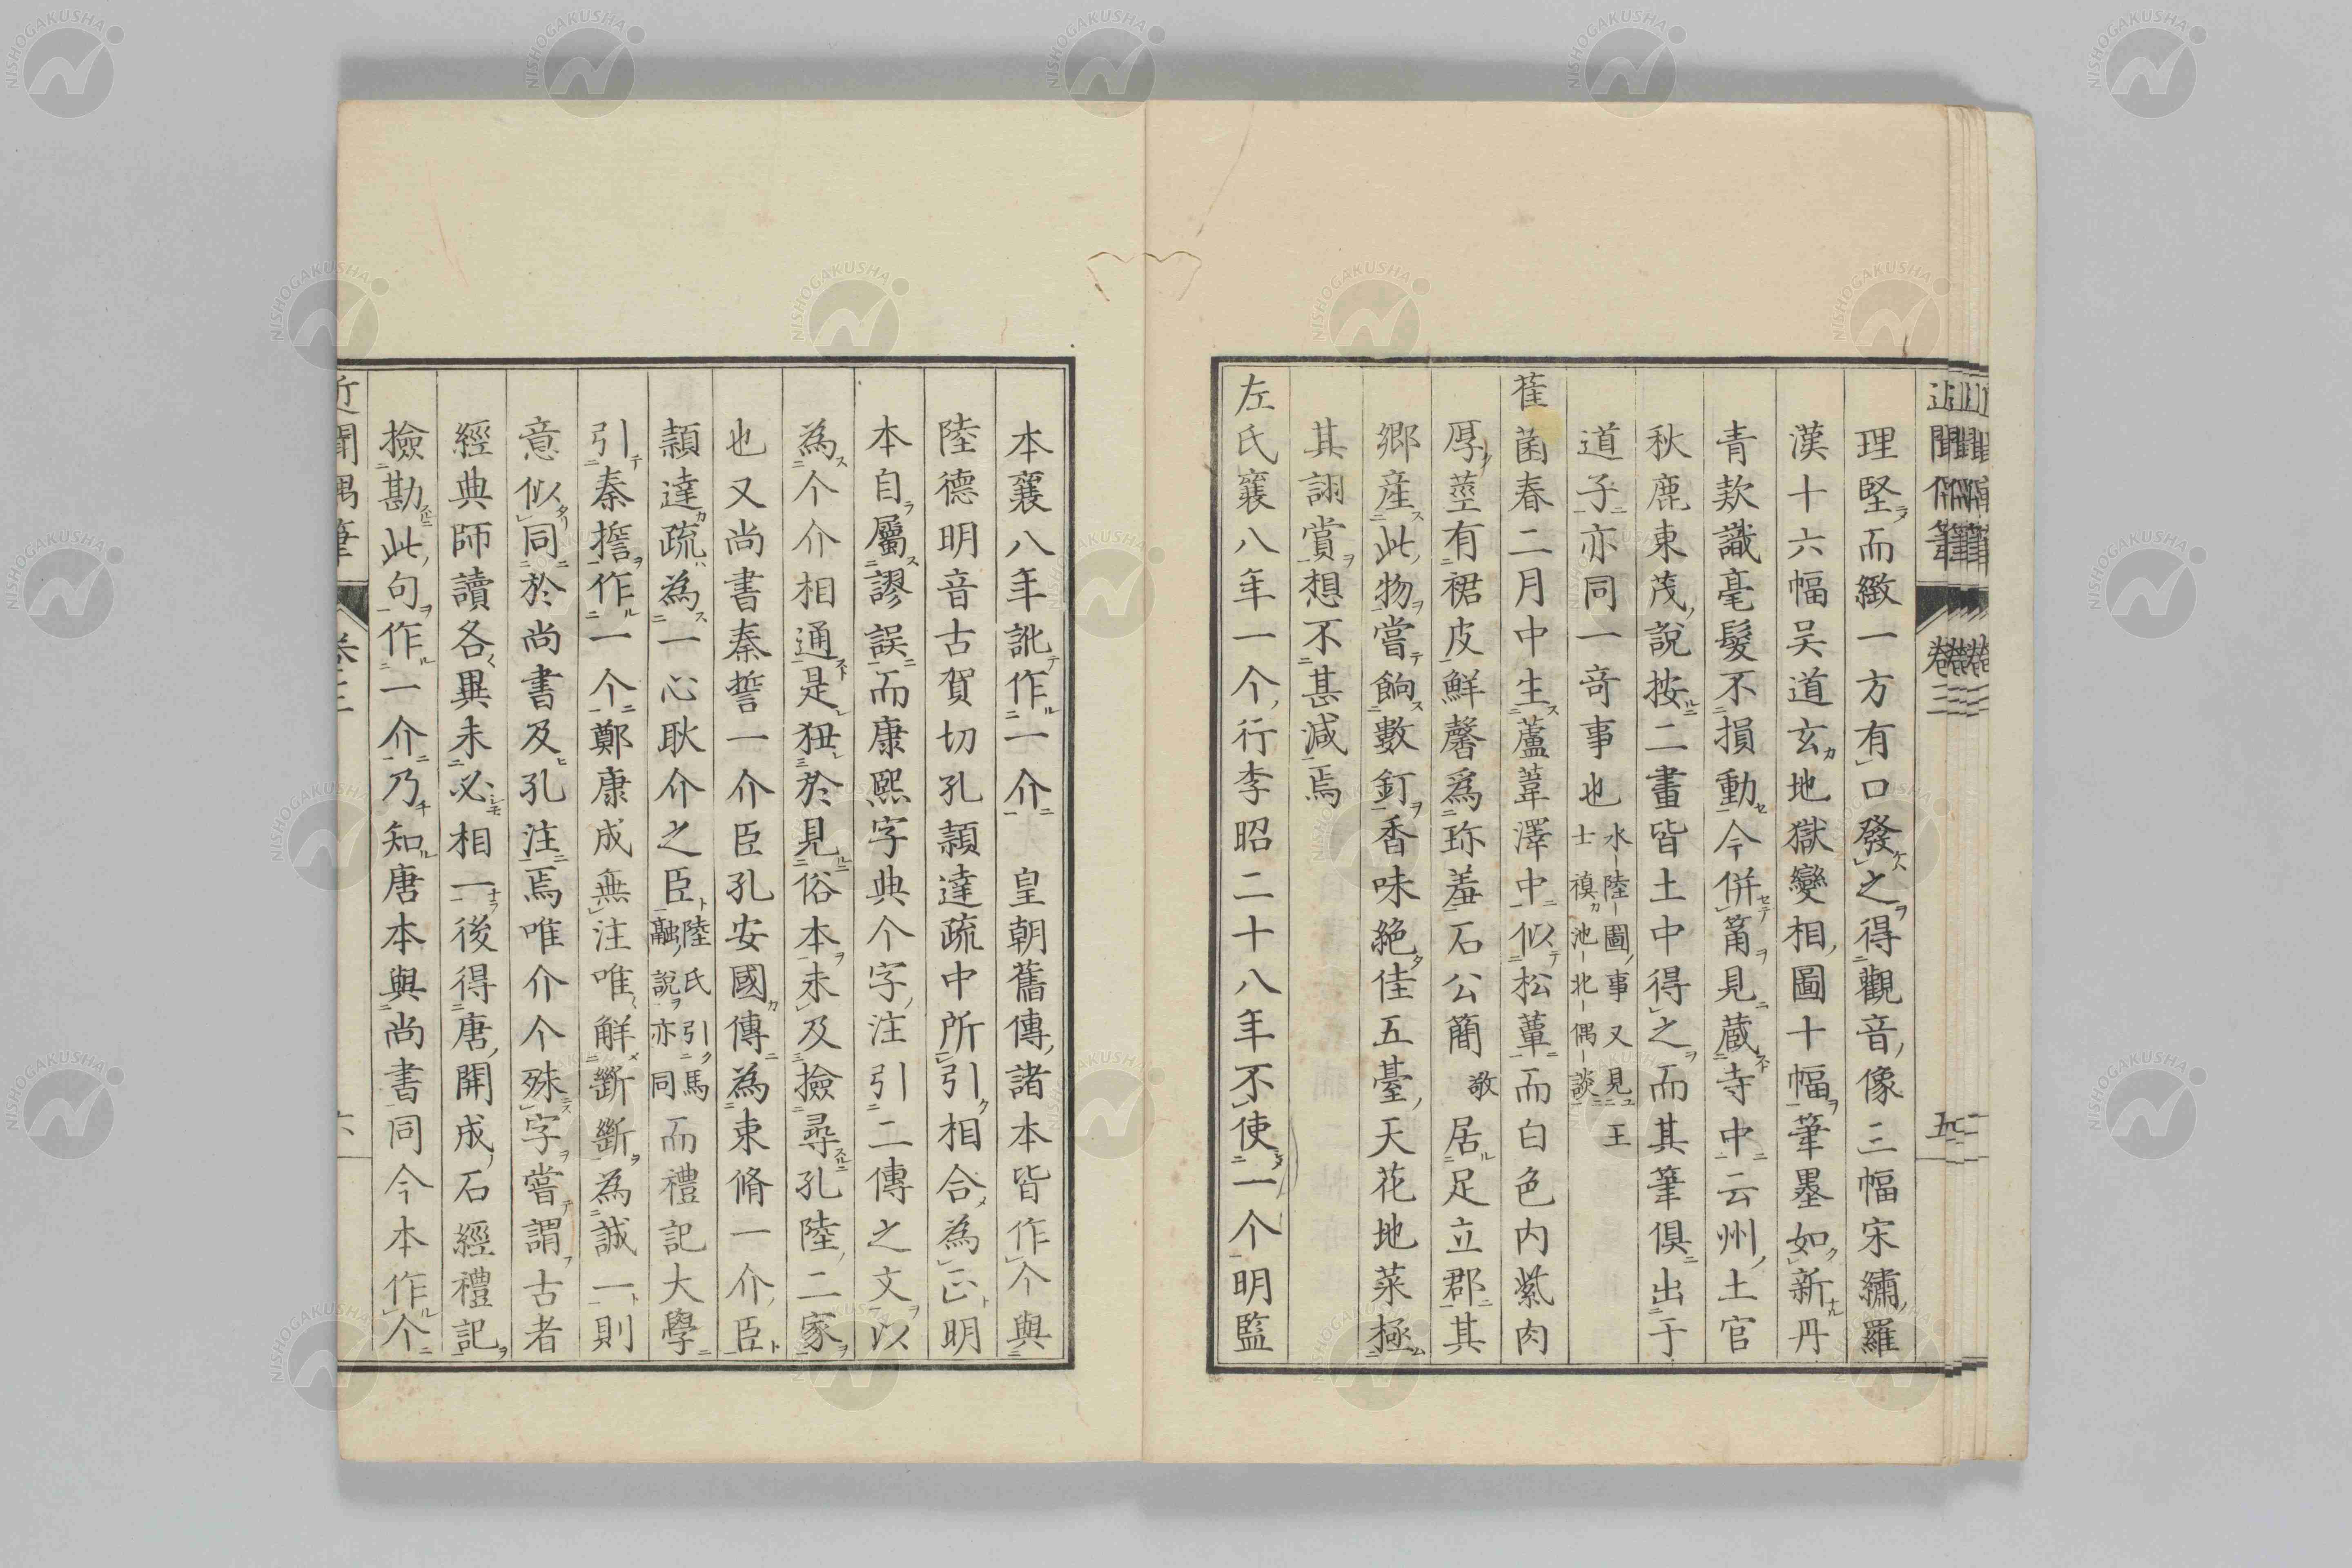 理堅而緻一方有口發之得觀音像三幅宋繡羅
漢十六幅吴道玄地獄變相圖十幅筆墨如新丹
青欵識毫髮不損動今併篅見蔵寺中云州土官
秋鹿東茂說按二畫皆土中得之而其筆倶出于
道子亦同一竒事也水陸圖事又見王士禛池北偶談
萑菌春二月中生蘆葦澤中似松蕈而白色内紫肉
厚莖有裙皮鮮馨爲珎羞石公簡敬居足立郡其
鄉産此物嘗餉數釘香味絶佳五臺天花地菜極
其詡賞想不甚減焉
左氏襄八年一个行李昭二十八年不使一个明監
本襄八年訛作一介 皇朝舊傳諸本皆作个與
陸德明音古賀切孔頴達疏中所引相合為正明
本自屬謬誤而康熙字典个字注引二傳之文以
為个介相通是狃於見俗本未及撿尋孔陸二家
也又尚書秦誓一介臣孔安國傳為束脩一介臣
頴達疏為一心耿介之臣陸氏引馬融說亦同而禮記大學
引秦誓作一个鄭康成無注唯解斷斷為誠一則
意似同於尚書及孔注焉唯介个殊字嘗謂古者
經典師讀各異未必相一後得唐開成石經禮記
撿勘此句作一介乃知唐本與尚書同今本作个
近聞偶筆
卷三
六
近聞偶筆
卷三
五
NISHOGAKUSHA